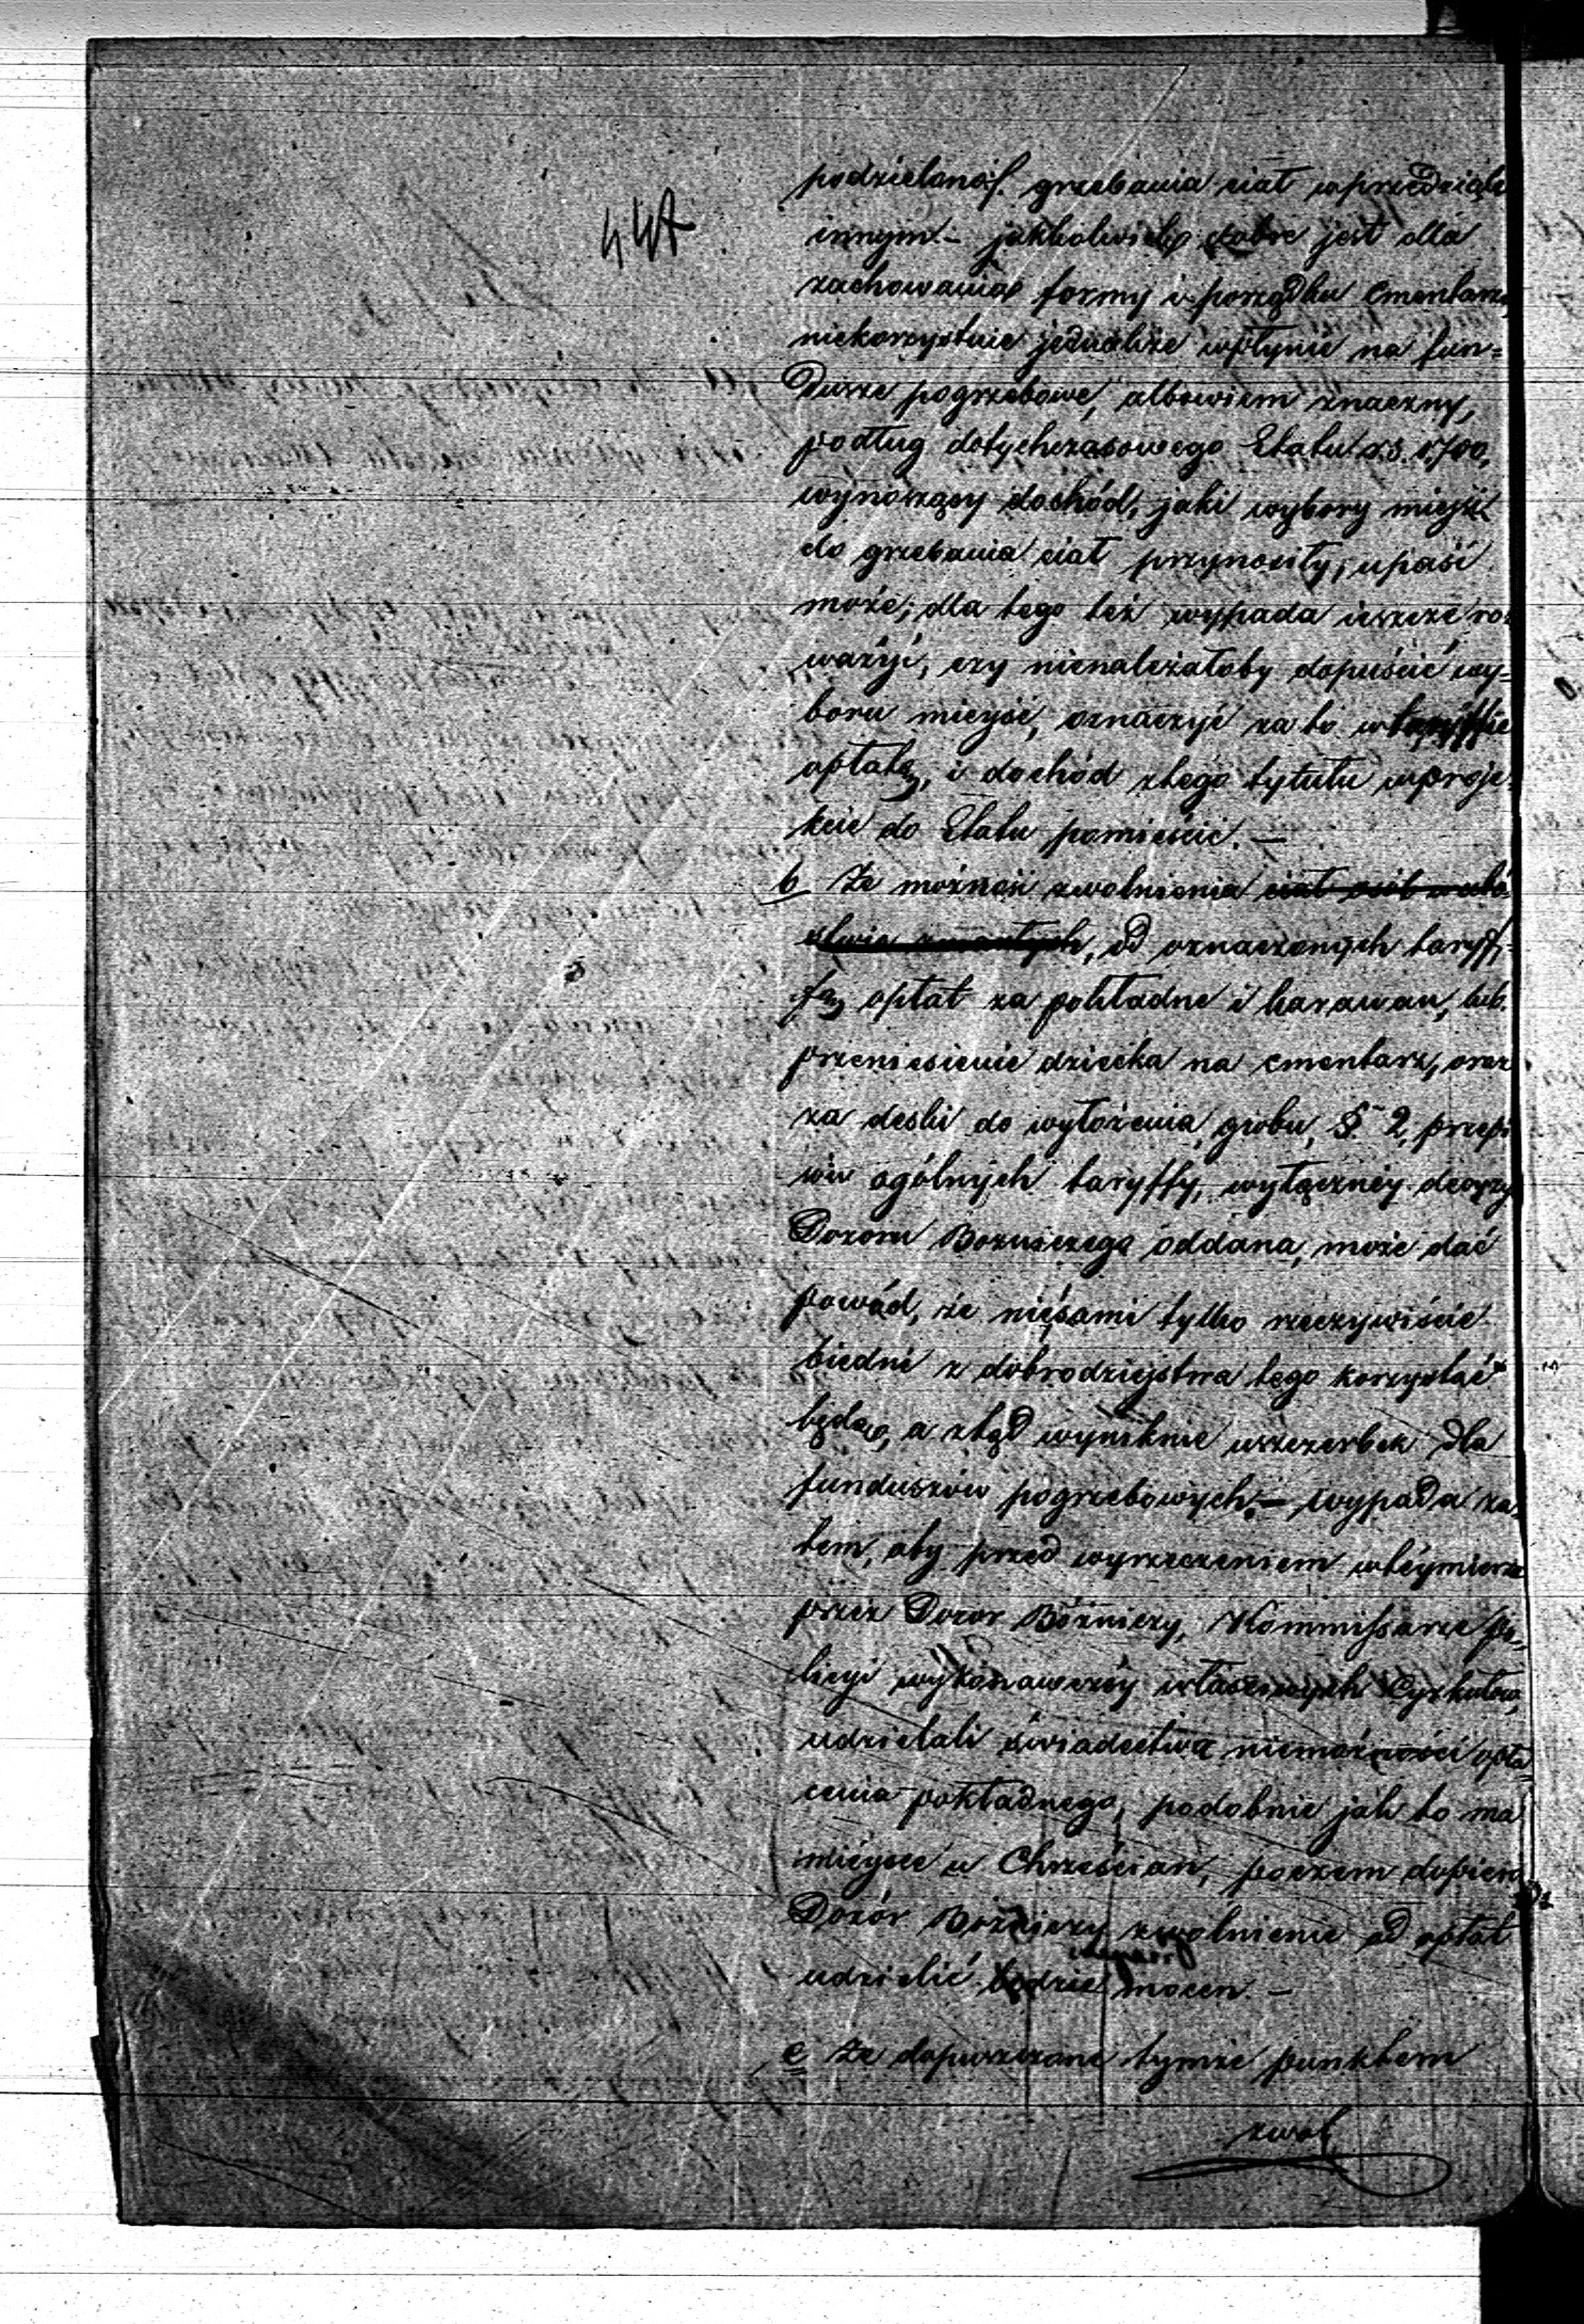 447
podzielonéj. grzebania ciał w przedziale
innym. – jakkolwiek dobre jest dla
zachowania formy i porządku Cmentarza
niekorzystnie jednakże wpłynie na fun=
dusze pogrzebowe, albowiem znaczny,
podług dotychczasowego Etatu rs. 1,700,
wynoszący dochód, jaki wybory miejsc
do grzebania ciał przynosiły, upaść
może; dla tego też wypada ieszcze roz
ważyć, czy nienależałoby dopuścić wy=
boru mieysc, oznaczyć za to w taryffie
opłatę, i dochód z tego tytułu w proje=
kcie do Etatu pomieścić. –
b Że możność zwolnienia ciał osób w ubó=
stwie zmarłych, od oznaczonych taryf=
fą opłat za pokładne i karawan, lub
przeniesienie dziecka na cmentarz, oraz
za deski do wyłożenia grobu, §. 2, przepi
sów ogólnych taryffy, wyłączney decyzyi
Dozoru Bożniczego oddana, może dać
powód, że nie sami tylko rzeczywiście
biedni z dobrodziejstwa tego korzystać
będą, a ztąd wyniknie uszczerbek dla
funduszów pogrzebowych. – wypada za=
tém, aby przed wyrzeczeniem w téy mierze
przez Dozor Bóżniczy, Kommissarze Po=
licyi wykonawczéy właściwych Cyrkułów,
udzielali świadectwa niemożności opła=
cenia pokładnego, podobnie jak to ma
mieysce u Chrześcian, poczem dopiero
Dozór Bożniczy zwolnienie od opłat
udzielić będzie mocen. –
c Że dopuszczone tymże punktem
zwol